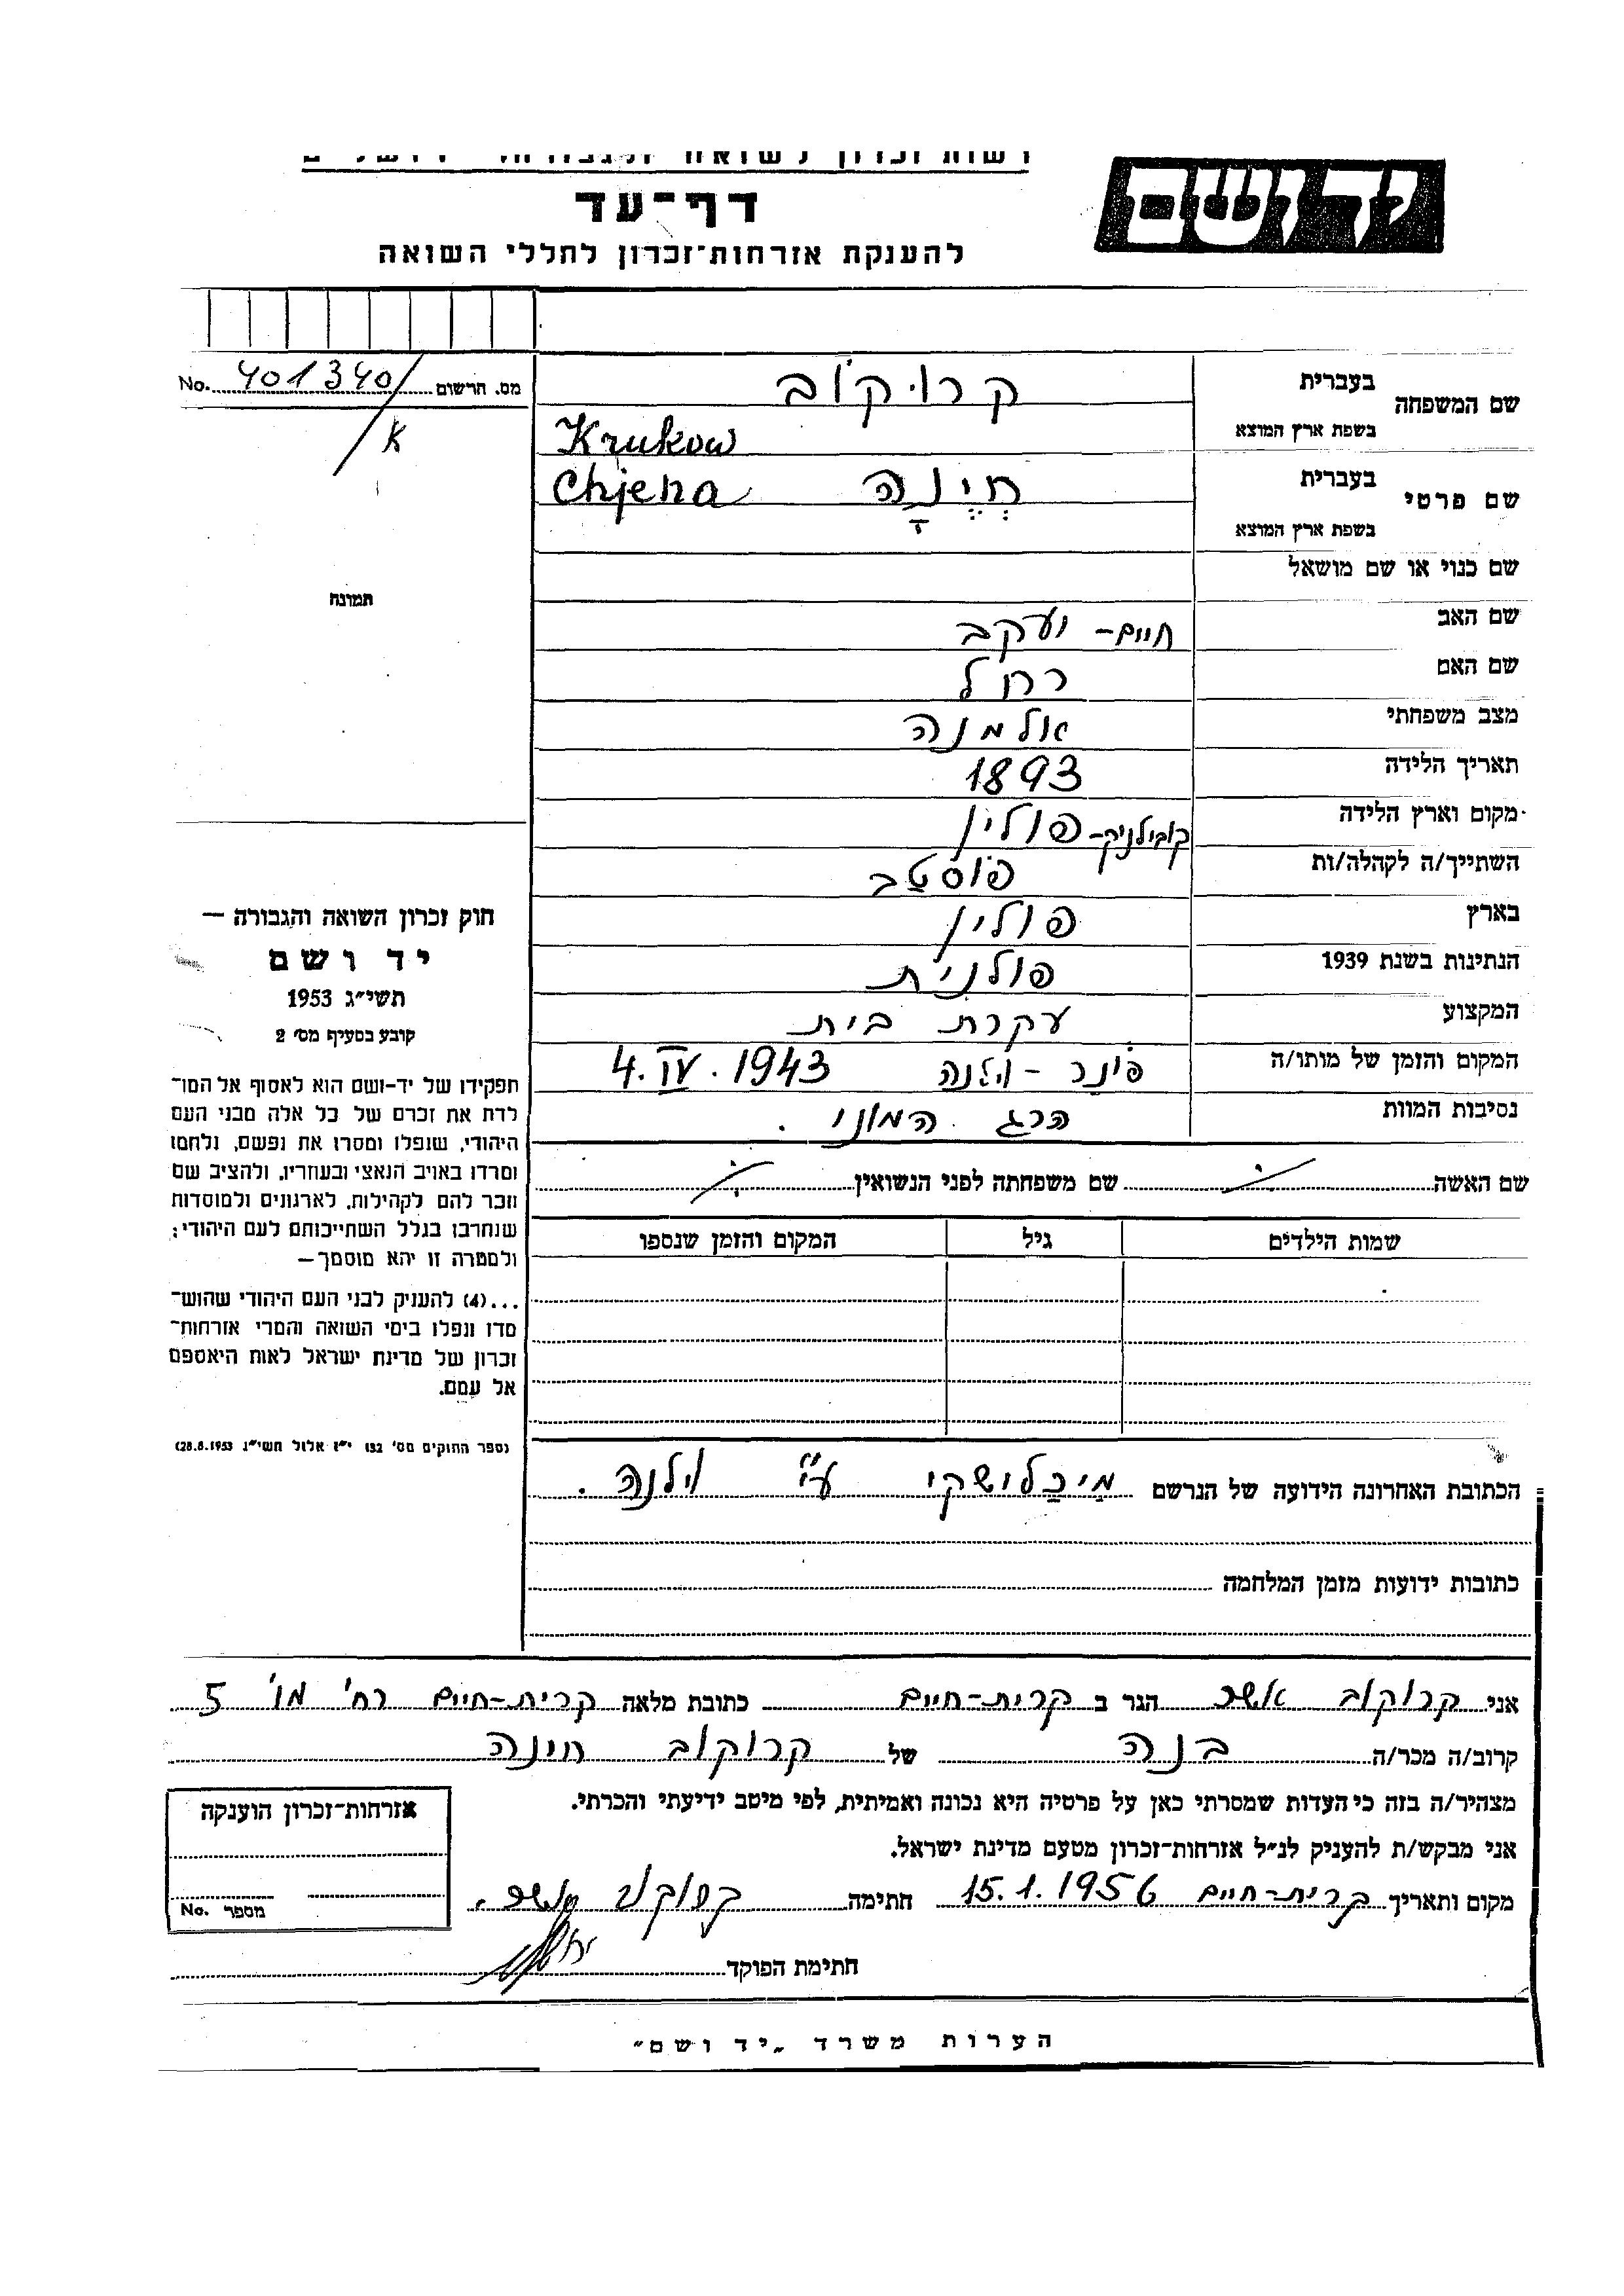 יד ושם
דף-עד
להענקת אזרחות-זכרון לחללי השואה
מס. הרשום 401340/ No.
K
תמונה
שם המשפחה
בעברית קרוקוב
בשפת ארץ המוצא Krukow
שם פרטי
בעברית חיֶנָה Chjena
בשפת ארץ המוצא
שם כנוי או שם מושאל
שם האב חיים- יעקב
שם האם רחל
מצב משפחתי אלמנה
תאריך הלידה 1893
מקום וארץ הלידה קובילניק-פולין
השתייך/ה לקהלה/ות פוסטב
בארץ פולין
הנתינות בשנת 1939 פולנית
המקצוע עקרת בית
המקום והזמן של מותו/ה פונר - וילנה 4.IV.1943
נסיבות המוות הרג המוני.
שם האשה שם משפחתה לפני הנשואין
שמות הילדים גיל המקום והזמן שנספו
חוק זכרון השואה והגבורה —
יד ושם
תשי״ג 1953
קובע בסעיף מס׳ 2
תפקידו של יד-ושם הוא לאסוף אל המו־
לדת את זכרם של כל אלה מבני העם
היהודי, שנפלו ומסרו את נפשם, נלחמו
ומרדו באויב הנאצי ובעוזריו, ולהציב שם
וזכר להם לקהילות, לארגונים ולמוסדות
שנחרבו בגלל השתייכותם לעם היהודי;
ולמטרה זו יהא מוסמך—
...(4) להעניק לבני העם היהודי שהוש־
מדו ונפלו בימי השואה והמרי אזרחות־
זכרון של מדינת ישראל לאות היאספם
אל עמם.
(ספר החוקים מס׳ 132 י״ז אלול תשי״ג 28.8.1953)
הכתובת האחרונה הידועה של הנרשם מיכלושקי ע״י וילנה.
כתובות ידועות מזמן המלחמה
אני קרוקוב אשר הגר ב קרית-חיים כתובת מלאה קרית-חיים רח׳ מו׳ 5
קרוב/ה מכר/ה בנה של קרוקוב חינה
מצהיר/ה בזה כי העדות שמסרתי כאן על פרטיה היא נכונה ואמיתית, לפי מיטב ידיעתי והכרתי.
אני מבקש/ת להעניק לנ״ל אזרחות-זכרון מטעם מדינת ישראל.
מקום ותאריך קרית-חיים 15.1.1956 חתימה קרוקוב אשר.
חתימת הפוקד
אזרחות-זכרון הוענקה
מספר No.
הערות משרד „יד ושם״